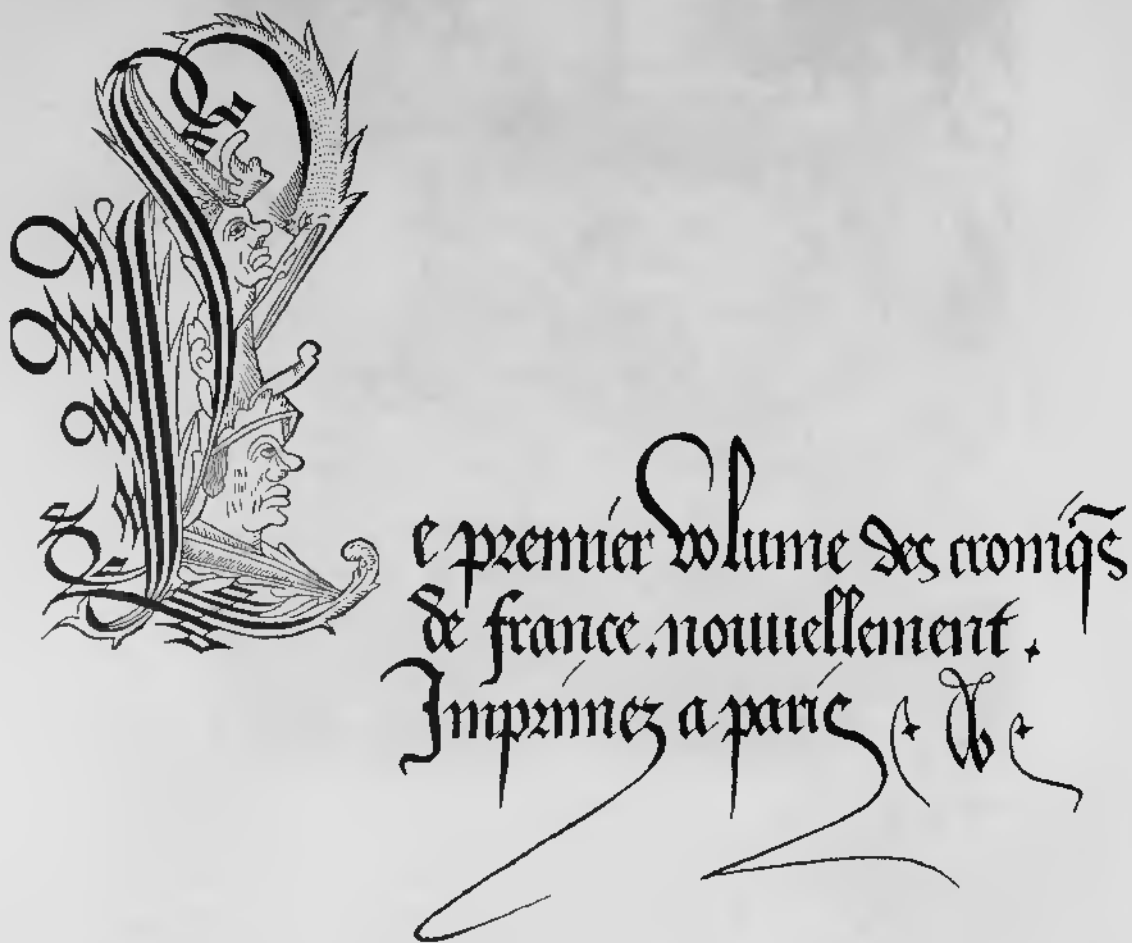 Le premier volume des croniq̄s
de france. nouuellement.
Imprimez a paris